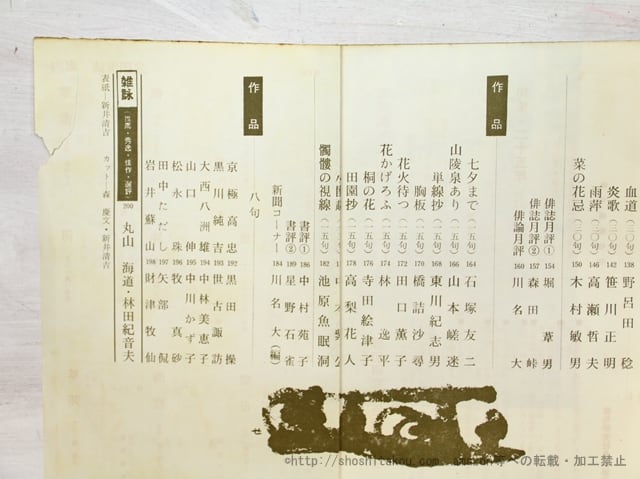 血道(二〇句) 138 野呂田稔
炎歌(二〇句) 142 笹川正明
雨萍(二〇句) 146 高瀬哲夫
菜の花忌(二〇句) 150 木村敏男
俳誌月評① 154 堀葦男
俳誌月評② 157 森田峠
俳論月評 160 川名大
作品
七夕まで(一五句) 164 石塚友二
山陵泉あり(一五句) 166 山本嵯迷
単線抄(一五句) 168 東川紀志男
胸板(一五句) 170 橋詰沙尋
花火待つ(一五句) 172 田口薫子
花かげろふ(一五句) 174 林逸平
桐の花(一五句) 176 寺田絵津子
田園抄(一五句) 178 高梨花人
髑髏の視線(一五句) 182 池原魚眠洞
書評① 186 中村苑子
書評② 189 星野石雀
新聞コーナー 184 川名大(編)
作品
八句
京極高忠 192 黒田操
黒川純吉 193 世古諏訪
大西八洲雄 194 中林美恵子
山口伸 195 中川かず子
松永珠 196 牧真砂
田中ただし 197 矢部侃
岩井蘇山 198 財津牧仙
雑詠 200 丸山海道・林田紀音夫
表紙―新井清吉
カット―森慶文・新井清吉
せ
©http://shoshitakou.com amazon等への転載・加工禁止